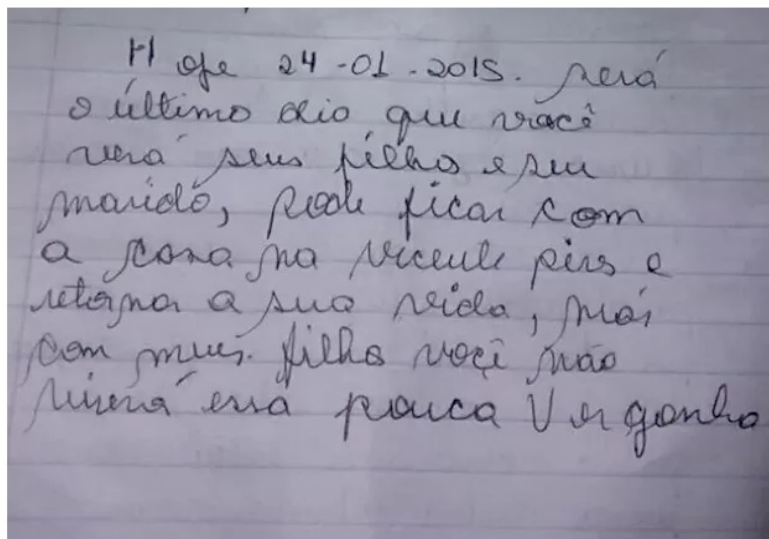 Hoje 24-01-2015. será
o último dia que você
verá seus filho e seu
marido, pode ficar com
a casa na vicente pires e
retorna a sua vida, mas
com meus. filho você não
viverá essa pouca Vergonha